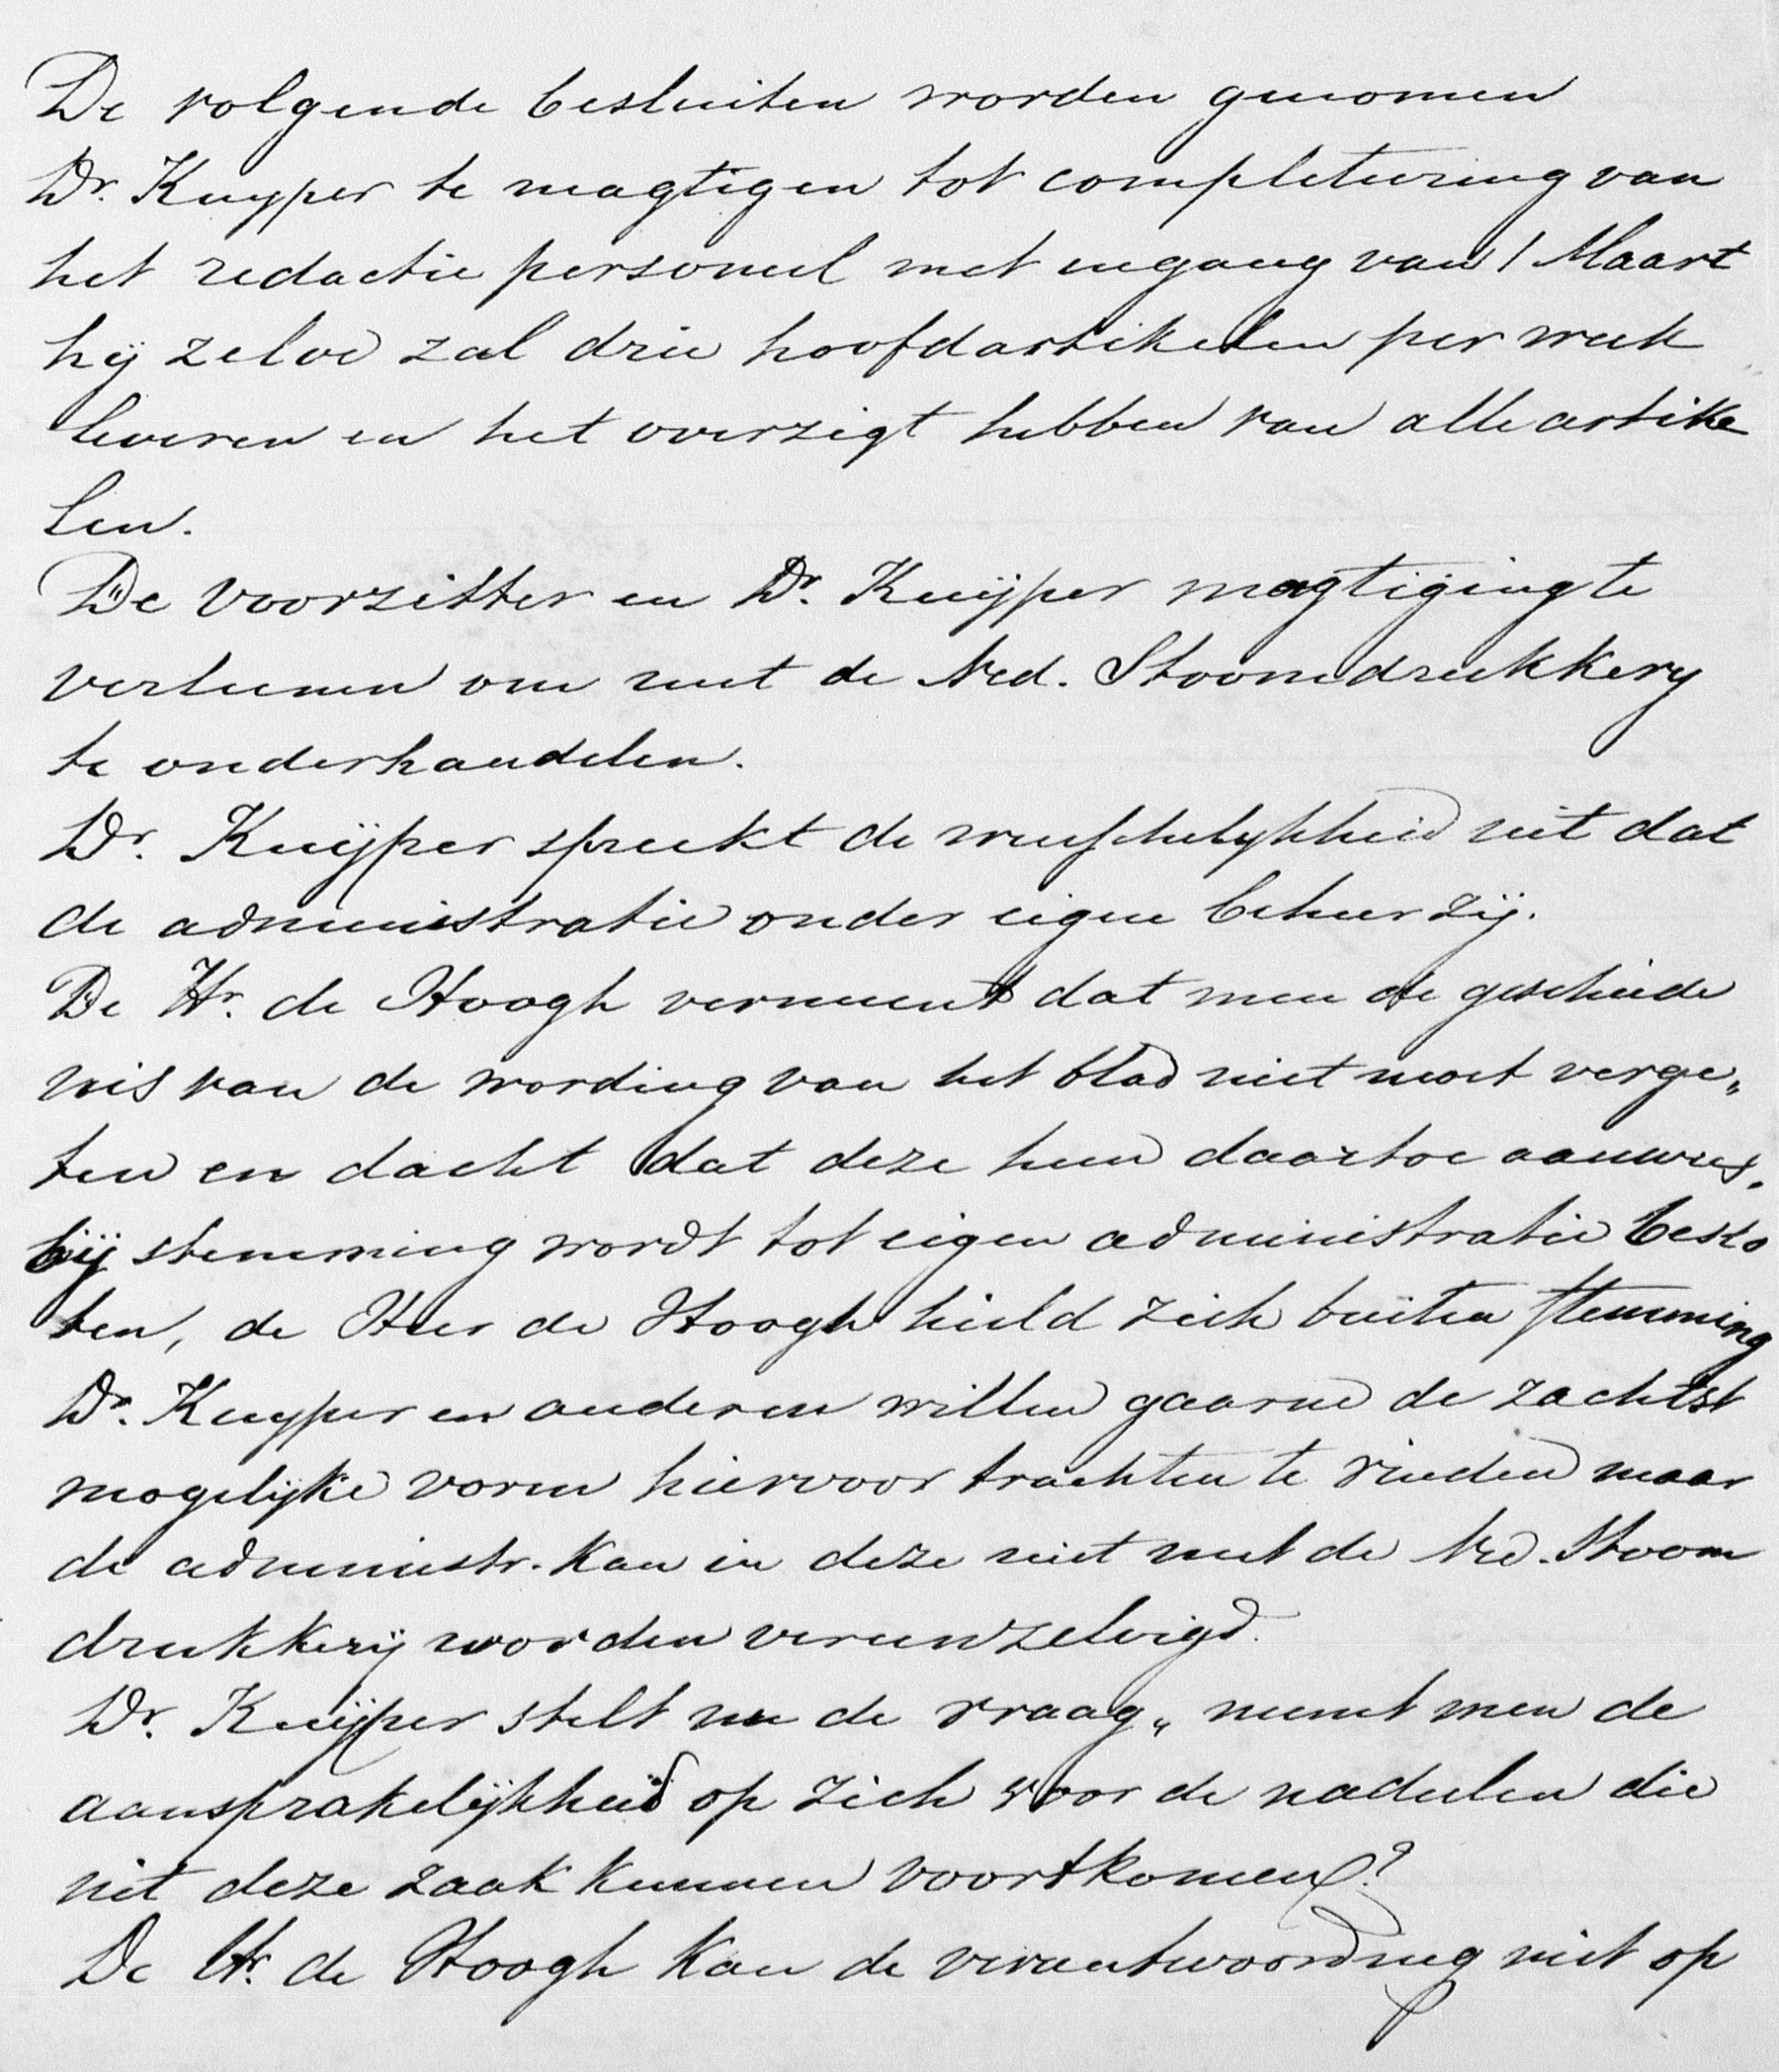 De volgende besluiten worden genomen
Dr. Kuyper te magtigen tot completeering van
het redactie personeel met ingang van 1 Maart
hij zelve zal drie hoofdartikelen per week
leveren en het overzigt hebben van alle artike
len.
De Voorzitter en Dr. Kuijper magtiging te
verleenen om met de Ned. Stoomdrukkery
te onderhandelen.
Dr. Kuijper spreekt de wenschelykheid uit dat
de administratie onder eigen beheer zij.
De Hr. de Hoogh vermeent dat men de geschiede
nis van de wording van het blad niet moet verge„
ten en dacht dat deze hen daartoe aanwees.
bij stemming wordt tot eigen administratie beslo
ten, de Heer de Hoogh hield zich buiten stemming
Dr. Kuyper en anderen willen gaarne de zachtst
mogelijke vorm hiervoor trachten te vinden maar
de administr. kan in deze niet met de Ned. Stoom
drukkerij worden vereenzelvigd.
Dr. Kuijper stelt nu de vraag „ neemt men de
aansprakelijkheid op zich voor de nadeelen die
uit deze zaak kunnen voortkomen?
De Hr. de Hoogh kan de verantwoording niet op